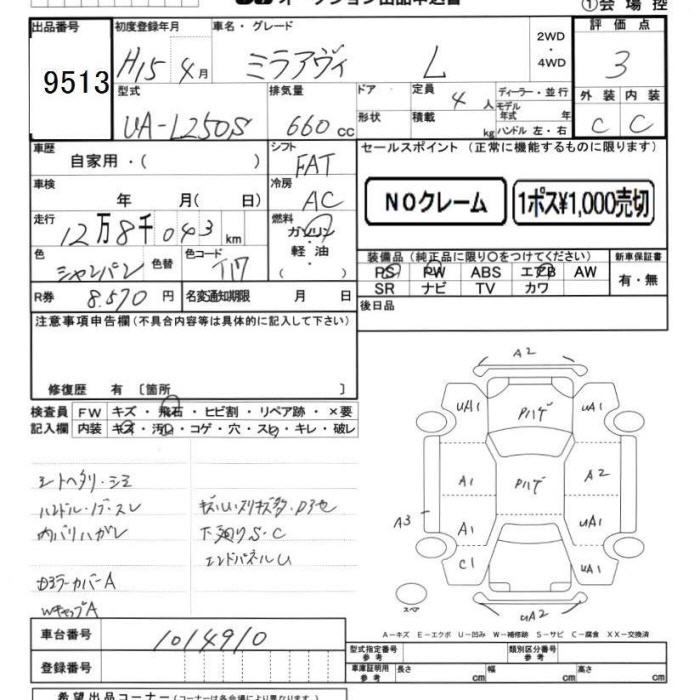 オークション出品申込書
①会場控
出品番号 初度登録年月 車名・グレード 評価点
9513 H15年4月 ミラアヴィ L 2WD・4WD 3
型式 排気量 ドア 定員 4人 ディーラー・並行 外装 内装
UA-L250S 660cc 形状 積載 kg モデル年式 年 ハンドル 左・右 C C
車歴 自家用・( ) シフト FAT セールスポイント (正常に機能するものに限ります)
車検 年 月( 日) 冷房 AC NOクレーム 1ポス¥1,000売切
走行 12万8千043km 燃料 ガソリン・軽油
装備品 (純正品に限り○をつけてください) 新車保証書
色 シャンパン 色替 色コード T17 PS PW ABS エアB AW 有・無
SR ナビ TV カワ
R券 8,570円 名変通知期限 月 日 後日品
注意事項申告欄(不具合内容等は具体的に記入して下さい)
修復歴 有 〔箇所 〕
検査員記入欄 FW キズ・飛石・ヒビ割・リペア跡・×要
内装 キズ・汚レ・コゲ・穴・スレ・キレ・破レ
シートヘタリ・シミ
ハンドル・ノブ・スレ
内バリハガレ
下廻りS・C
エンドパネルU
Dミラーカバー A
WキャップA
A2
UA1 Pハゲ UA1
A1 Pハゲ A2
A3 A1 UA1
C1 UA1
UA2
スペア
A-キズ E-エクボ U-凹み W-補修跡 S-サビ C-腐食 XX-交換済
車台番号 1014910 型式指定番号 参考 類別区分番号 参考
登録番号 車庫証明用 参考 長さ cm 幅 cm 高さ cm
希望出品コーナー (コーナーは各会場により異なります)